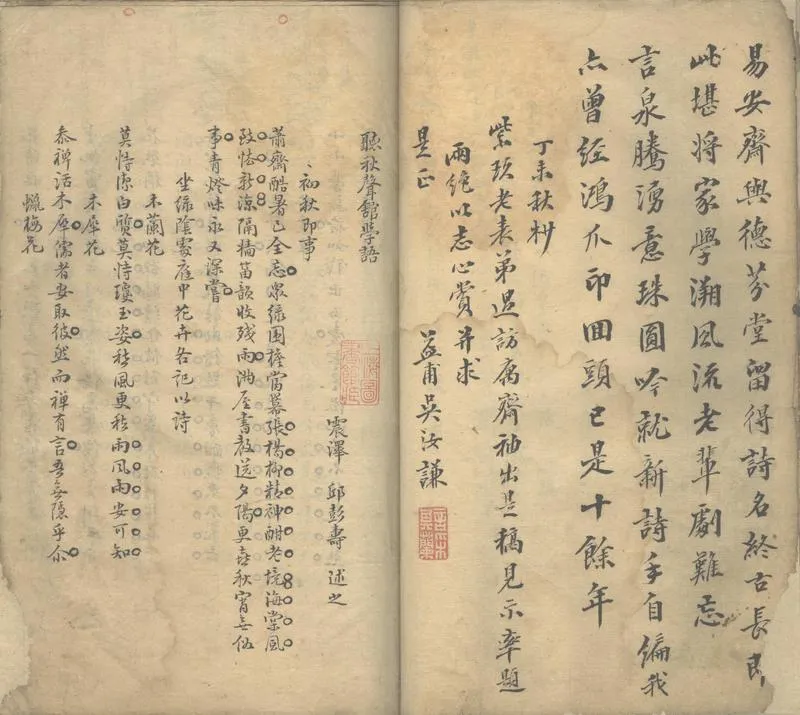 易安齋與德芬堂留得詩名終古長即
此堪將家學溯風流老輩劇難忘
言泉騰湧意珠圓吟就新詩手自編我
亦曾經鴻爪印囬頭已是十餘年
丁未秋杪
紫玖老表弟過訪寓齋袖出是稿見示率題
兩絕以志心賞并求
是正
益甫吳汝謙
聽秋聲館學語
震澤 邱彭壽 述之
初秋即事
蕭齋酷暑已全忘眾綠圍檐當幕張楊柳精神酣老境海棠風
致恰新涼隔牆笛韻收殘雨滿屋書聲送夕陽更喜秋宵無個
事青燈味永又深嘗
坐綠陰處庭中花卉各記以詩
木蘭花
莫恃白質莫恃瓊玉姿秋風更秋雨風雨安可知
木犀花
參禪話木犀儒者安取彼然而禪有言吾無隱乎尔
蠟梅花